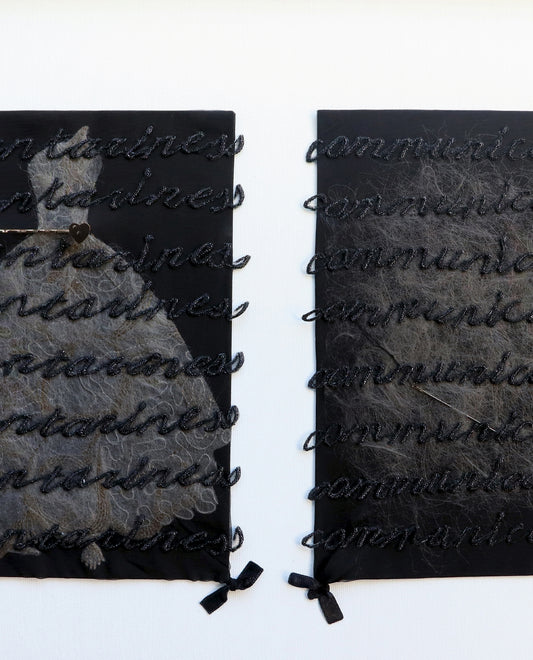 ntariness
ntariness
ntariness
ntariness
ntariness
ntariness
ntariness
ntariness
communica
communica
communic
communica
communica
communic
communica
communic